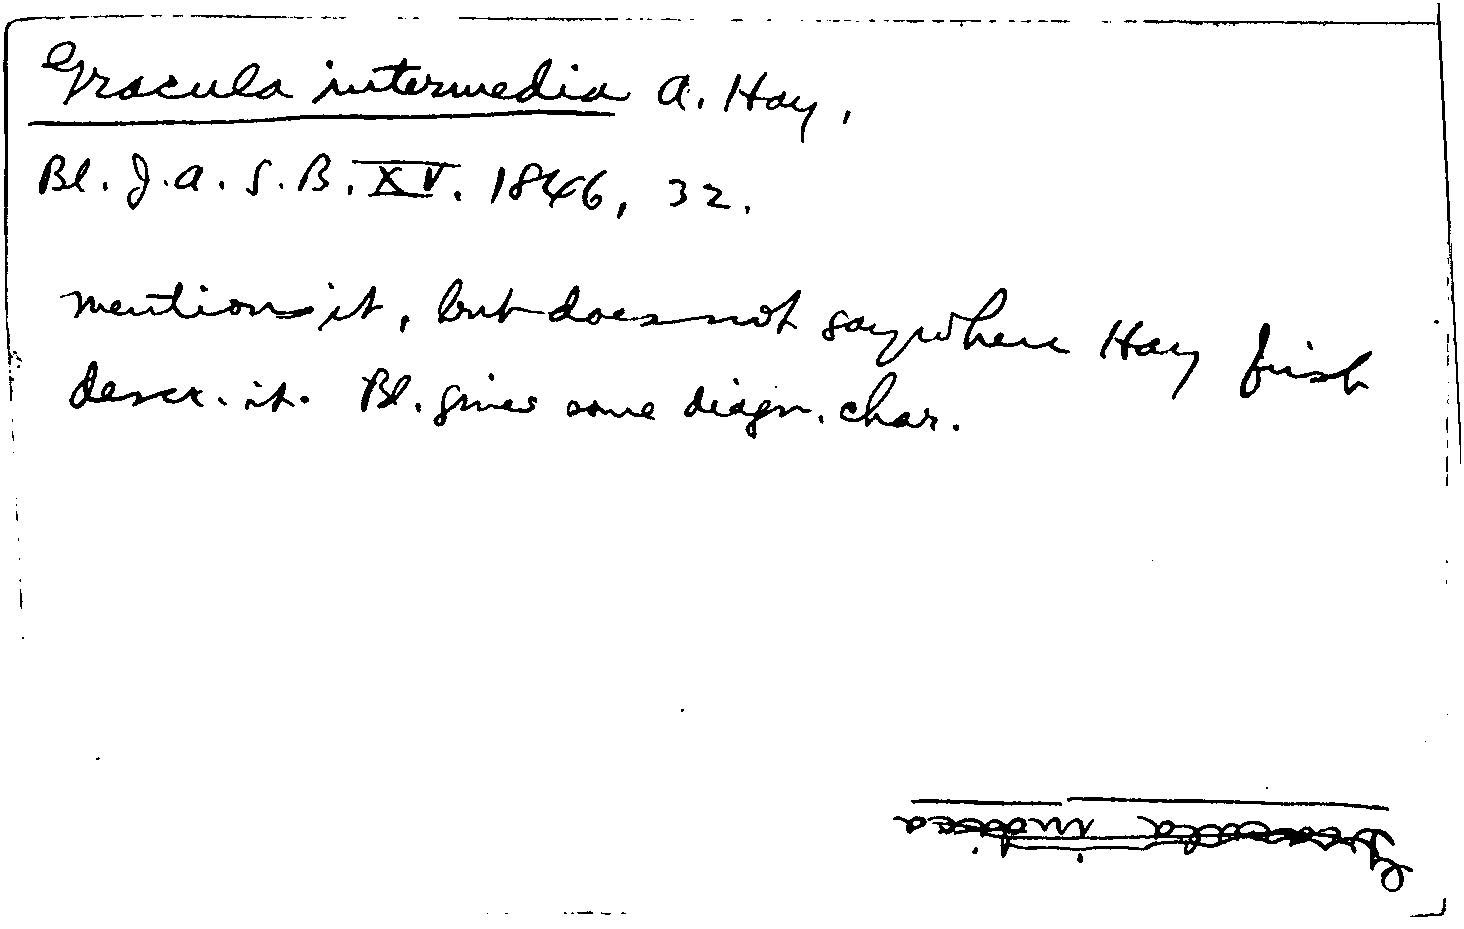 Gracula intermedia A. Hay,
Bl. J.A.S.B. XV. 1846, 32.
mentions it, but does not say where Hay first
descr. it. Bl. gives some diagn. char.
Gracula indica